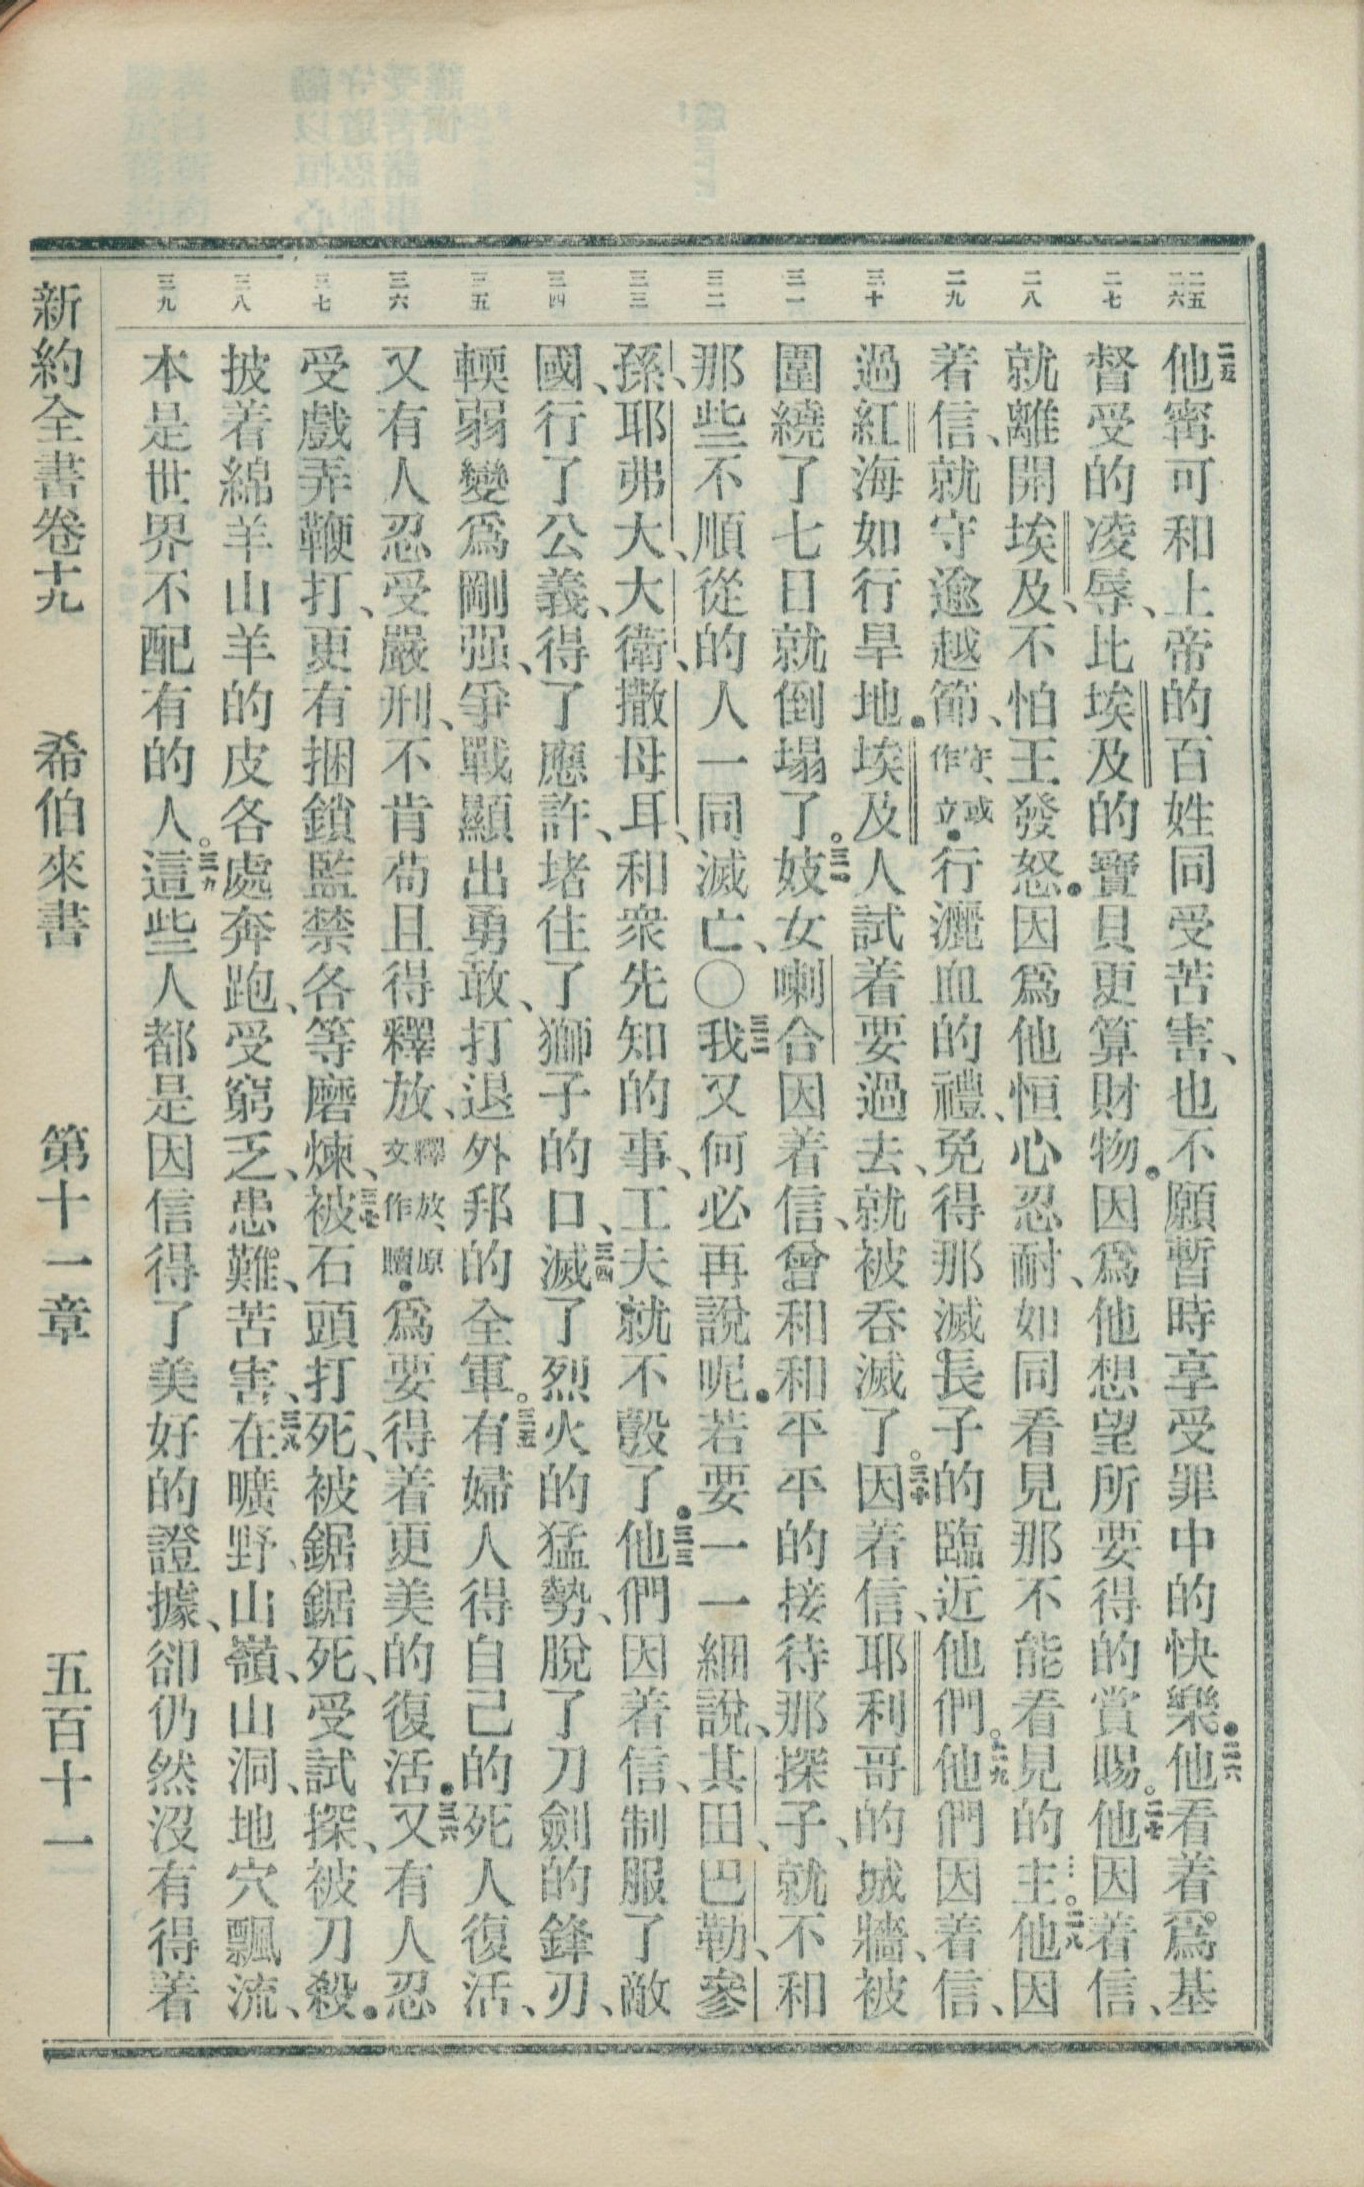 二五 二六 二七 二八 二九 三十 三一 三二 三三 三四 三五 三六 三七 三八 三九
二五他寗可和上帝的百姓同受苦害、也不願暫時享受罪中的快樂．二六他看着爲基
督受的凌辱、比埃及的寶貝更算財物．因爲他想望所要得的賞賜。二七他因着信、
就離開埃及、不怕王發怒．因爲他恒心忍耐、如同看見那不能看見的主。二八他因
着信、就守逾越節、守、或作立．行灑血的禮、免得那滅長子的臨近他們。二九他們因着信、
過紅海如行旱地．埃及人試着要過去、就被吞滅了。三十因着信、耶利哥的城牆、被
圍繞了七日就倒塌了。三一妓女喇合因着信、曾和和平平的接待那探子、就不和
那些不順從的人一同滅亡、○三二我又何必再說呢．若要一一細說、其田、巴勒、參
孫、耶弗大、大衛、撒母耳、和衆先知的事、工夫就不彀了．三三他們因着信、制服了敵
國、行了公義、得了應許、堵住了獅子的口、三四滅了烈火的猛勢、脫了刀劍的鋒刃、
輭弱變爲剛强、爭戰顯出勇敢、打退外邦的全軍。三五有婦人得自己的死人復活、
又有人忍受嚴刑、不肯苟且得釋放、釋放、原文作贖．爲要得着更美的復活．三六又有人忍
受戲弄鞭打、更有捆鎖監禁各等磨煉、三七被石頭打死、被鋸鋸死、受試探、被刀殺．
披着綿羊山羊的皮各處奔跑、受窮乏、患難、苦害、三八在曠野、山嶺、山洞、地穴飄流、
本是世界不配有的人。三九這些人都是因信得了美好的證據、卻仍然沒有得着
新約全書卷十九 希伯來書 第十一章 五百十一